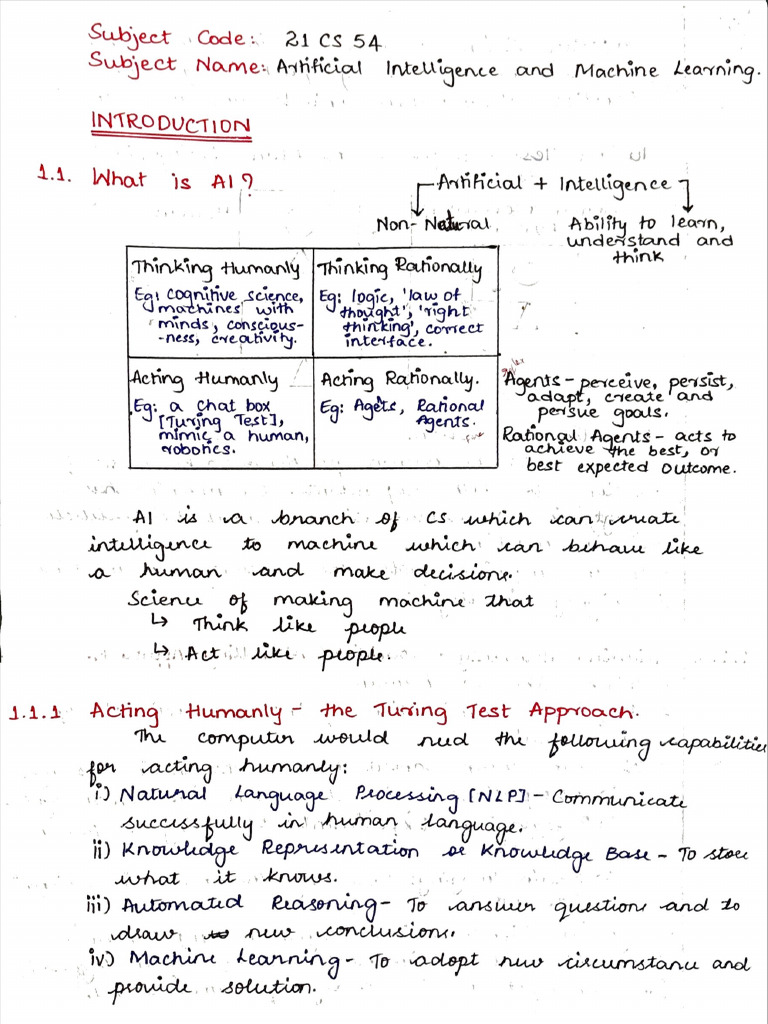 Subject Code: 21 CS 54
Subject Name: Artificial Intelligence and Machine Learning.
INTRODUCTION
1.1. What is AI?
Artificial + Intelligence
Non-Natural
Ability to learn,
understand and
think
Thinking Humanly
Eg: cognitive science,
machines with
minds, conscious-
-ness, creativity.
Thinking Rationally
Eg: logic, 'law of
thought', 'right
thinking', correct
interface.
Acting Humanly
Eg: a chat box
[Turing Test],
mimic a human,
robotics.
Acting Rationally.
Eg: Agets, Rational
Agents.
Agents - perceive, persist,
adapt, create and
persue goals.
Rational Agents - acts to
achieve the best, or
best expected outcome.
AI is a branch of CS which can create
intelligence to machine which can behave like
a human and make decisions.
Science of making machine that
↳ Think like people
↳ Act like people.
1.1.1 Acting Humanly - the Turing Test Approach.
The computer would need the following capabilities
for acting humanly:
i) Natural Language Processing [NLP] - Communicate
successfully in human language.
ii) Knowledge Representation or Knowledge Base - To store
what it knows.
iii) Automated Reasoning - To answer questions and to
draw new conclusions.
iv) Machine Learning - To adopt new circumstance and
provide solution.